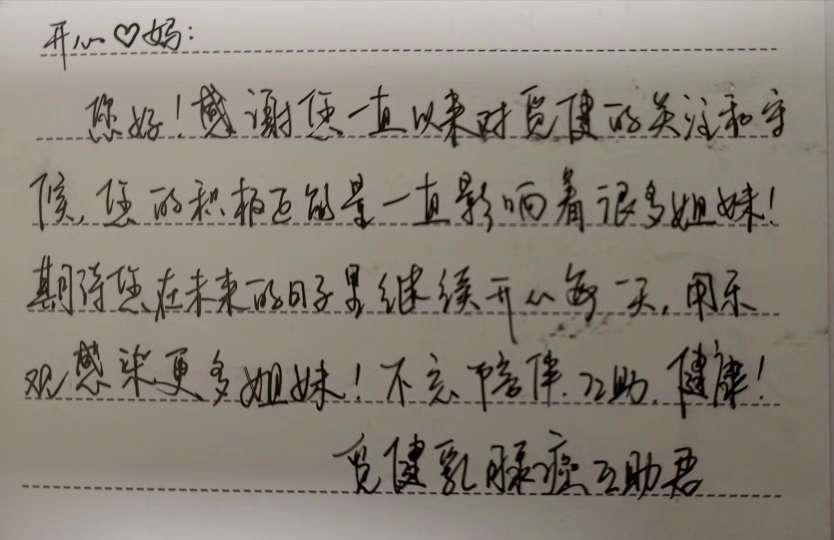 开心♡妈:
您好!感谢您一直以来对觅健的关注和守
候,您的积极正能量一直影响着很多姐妹!
期待您在未来的日子里继续开心每一天,用乐
观感染更多姐妹!不忘陪伴.互助.健康!
觅健乳腺癌互助君